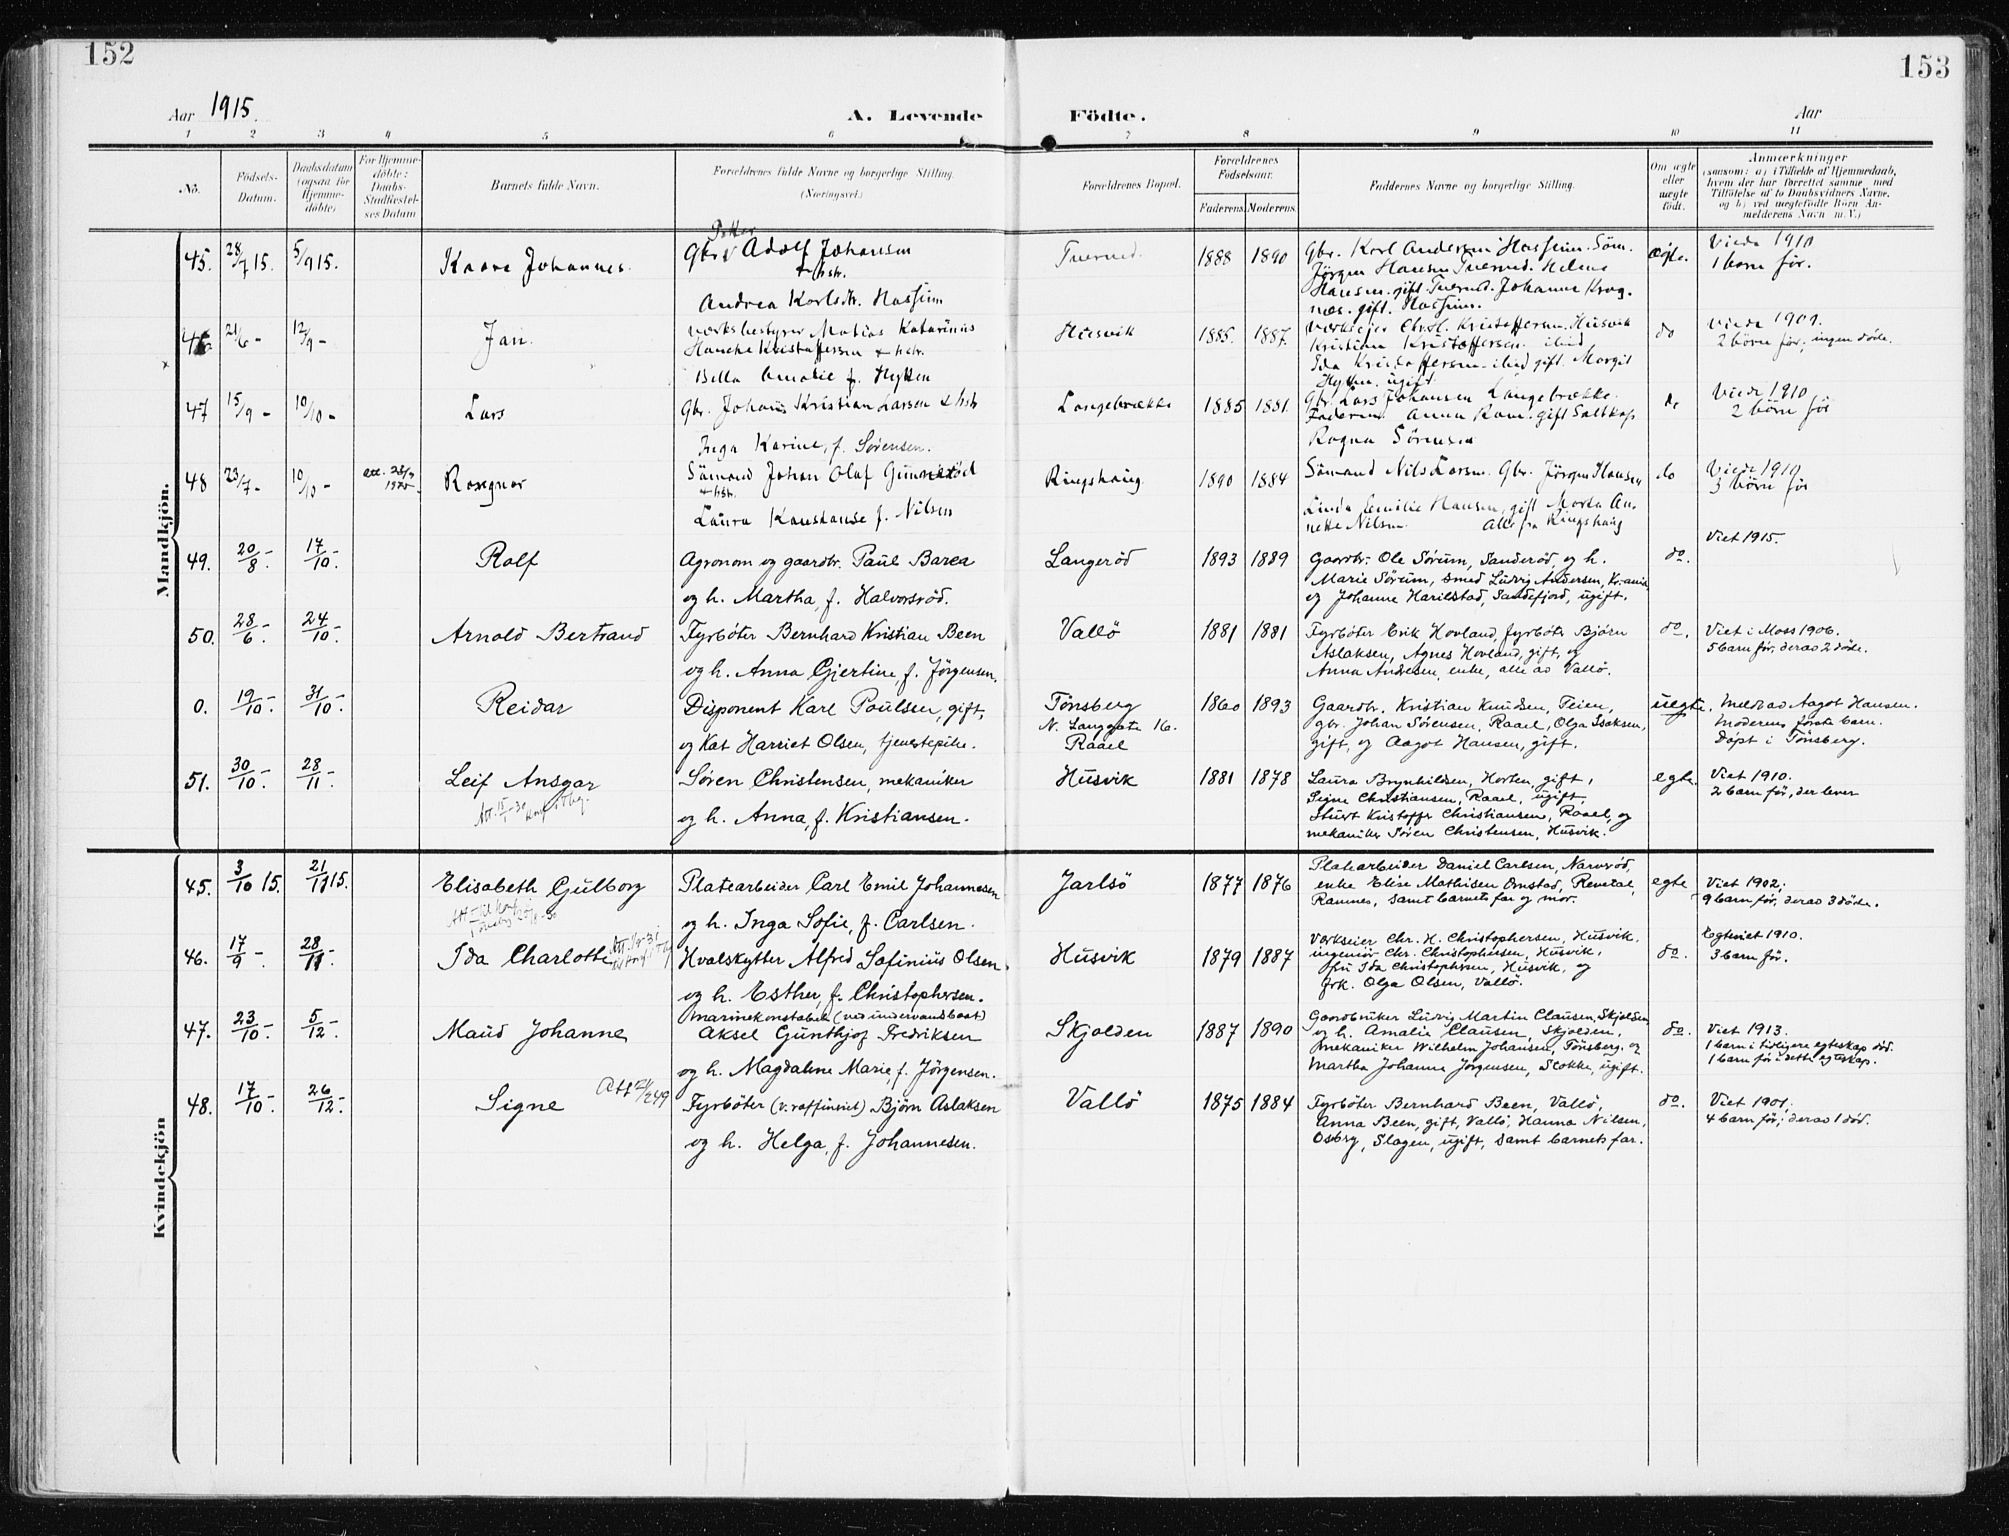 152
153
Aar 1915.
A. Levende
Födte.
Aar
1 2 3 4 5 6 7 8 9 10 11
No. Födsels-Datum. Daabsdatum (ogsaa for Hjemme-döbte) For Hjemme-döbte: Daabs-Stadfæstel-ses Datum Barnets fulde Navn. Forældrenes fulde Navne og borgerlige Stilling. (Næringsvei.) Forældrenes Bopæl. Forældrenes Födselsaar. Faderens Moderens Faddernes Navne og borgerlige Stilling. Om ægte eller uægte födt. Anmærkninger (saasom: a) i Tilfælde af Hjemmedaab, hvem der har forrettet samme med Tilföielse af to Daabsvidners Navne, og b) ved uægtefödte Börn An-melderens Navn m. V.)
Mandkjön.
45. 28/7 15. 5/9 15. Kaare Johannes. Gbr. Adolf Johansen
Andrea Karlsdtr. Hassum
Tuerød. 1888 1890
Gbr. Karl Andersen Hassum. Söm.
Jörgen Hansen Tuerød. Helene
Hansen. gift Tuerød. Johanne Krog-
næs. gift. Hassum.
ægte.
Viede 1910
1 barn før.
46 21/6 - 12/9 - Jan. Verksbestyrer Matias Katarinus
Hancke Kristoffersen & hstr.
Bella Amalie f. Hytten
Husvik 1885. 1887.
Verkseier Chr. H. Kristoffersen. Husvik
Kristian Kristoffersen ibid
Ida Kristoffersen ibid gift. Margit
Hytten. ugift.
do
Viede 1909.
2 börn før, ingen døde.
47 15/9 - 10/10 - Lars Gbr. Johan Kristian Larsen & hstr
Inga Karine, f. Sørensen.
Langebrække 1885 1881.
Gbr. Lars Johansen Langebrække.
Faderen. Anna Ram. gift Saltkop
Ragna Sörensen
do
Viede 1910
2 börn før
48 23/7 - 10/10 - Ragnar Sömand Johan Olaf Gunnerød
& hstr.
Laura Konstanse f. Nilsen
Ringshaug 1890 1884
Sömand Nils Larsen. Gbr. Jörgen Hansen
Linda Emilie Hansen, gift Marta An-
nette Nilsen. Alle fra Ringshaug
do
Viede 1910
3 börn før
49. 20/8 - 17/10 - Rolf Agronom og gaardbr. Paul Barea
og h. Martha, f. Halvorsröd.
Langeröd 1893 1889
Gaardbr. Ole Sörum, Sanderöd, og h.
Marie Sörum, smed Ludvig Andersen, Kr.ania,
og Johanne Harilstad, Sandefjord, ugift.
do.
Viet 1915.
50. 28/6 - 24/10 - Arnold Bertrand Fyrböter Bernhard Kristian Been
og h. Anna Gjertine, f. Jörgensen.
Vallö 1881 1881
Fyrböter Erik Hovland, fyrböter Björn
Aslaksen, Agnes Hovland, gift, og
Anna Andresen, enke, alle av Vallö.
do.
Viet i Moss 1906.
5 barn för, derav 2 döde.
0. 19/10 - 31/10 - Reidar Disponent Karl Poulsen, gift,
og Kat Harriet Olsen, tjenestepike.
Tönsberg
N. Langgate 16.
Raael
1860 1893
Gaardbr. Kristian Knudsen, Teien,
gbr. Johan Sörensen, Raael, Olga Isaksen,
gift, og Aagot Hansen, gift.
uegte.
Meldt av Aagot Hansen.
Moderens förste barn.
Döpt i Tönsberg.
51. 30/10 - 28/11 - Leif Ansgar Sören Christensen, mekaniker
og h. Anna, f. Kristiansen.
Husvik 1881 1878
Laura Brynhildsen, Horten, gift,
Signe Christiansen, Raael, ugift,
Stuert Kristoffer Christiansen, Raael, og
mekaniker Sören Christensen, Husvik.
egte.
Viet 1910.
2 barn för, der lever
Kvindekjön
45. 3/10 15. 21/11 15. Elisabeth Gulborg Platearbeider Carl Emil Johannesen
og h. Inga Sofie, f. Carlsen.
Jarlsö 1877 1876
Platearbeider Daniel Carlsen, Narverød,
enke Elise Mathisen Ornstad, Revetal,
Ramnes, samt barnets far og mor.
egte
Viet 1902;
9 barn för, derav 3 döde.
46. 17/9 - 28/11 - Ida Charlotte Hvalskytter Alfred Safinius Olsen
og h. Esther, f. Christophersen.
Husvik 1879 1887
Verkseier Chr. H. Christophersen, Husvik,
ingeniör Chr. Christophersen, Husvik,
fru Ida Christophersen, Husvik, og
frk. Olga Olsen, Vallö.
do.
Egteviet 1910.
3 barn för.
47. 23/10 - 5/12 - Maud Johanne Marinekonstabel (ved undervandsbaat)
Aksel Gunthjof Fredriksen
og h. Magdalene Marie, f. Jörgensen.
Skjolden 1887 1890
Gaardbruker Ludvig Martin Clausen, Skjolden
og h. Amalie Clausen, Skjolden,
mekaniker Wilhelm Johansen, Tönsberg, og
Martha Johanne Jörgensen, Slokke, ugift.
do.
Viet 1913.
1 barn i tidligere egteskap död.
1 barn för i dette egteskap.
48. 17/10 - 26/12 - Signe Att 21/2 49 Fyrböter (v. raffineriet) Björn Aslaksen
og h. Helga, f. Johannesen.
Vallö 1875 1884
Fyrböter Bernhard Been, Vallö,
Anna Been, gift, Vallö, Hanna Nilsen,
Osbry, Slagen, ugift, samt barnets far.
do.
Viet 1901,
4 barn för, derav 1 död.